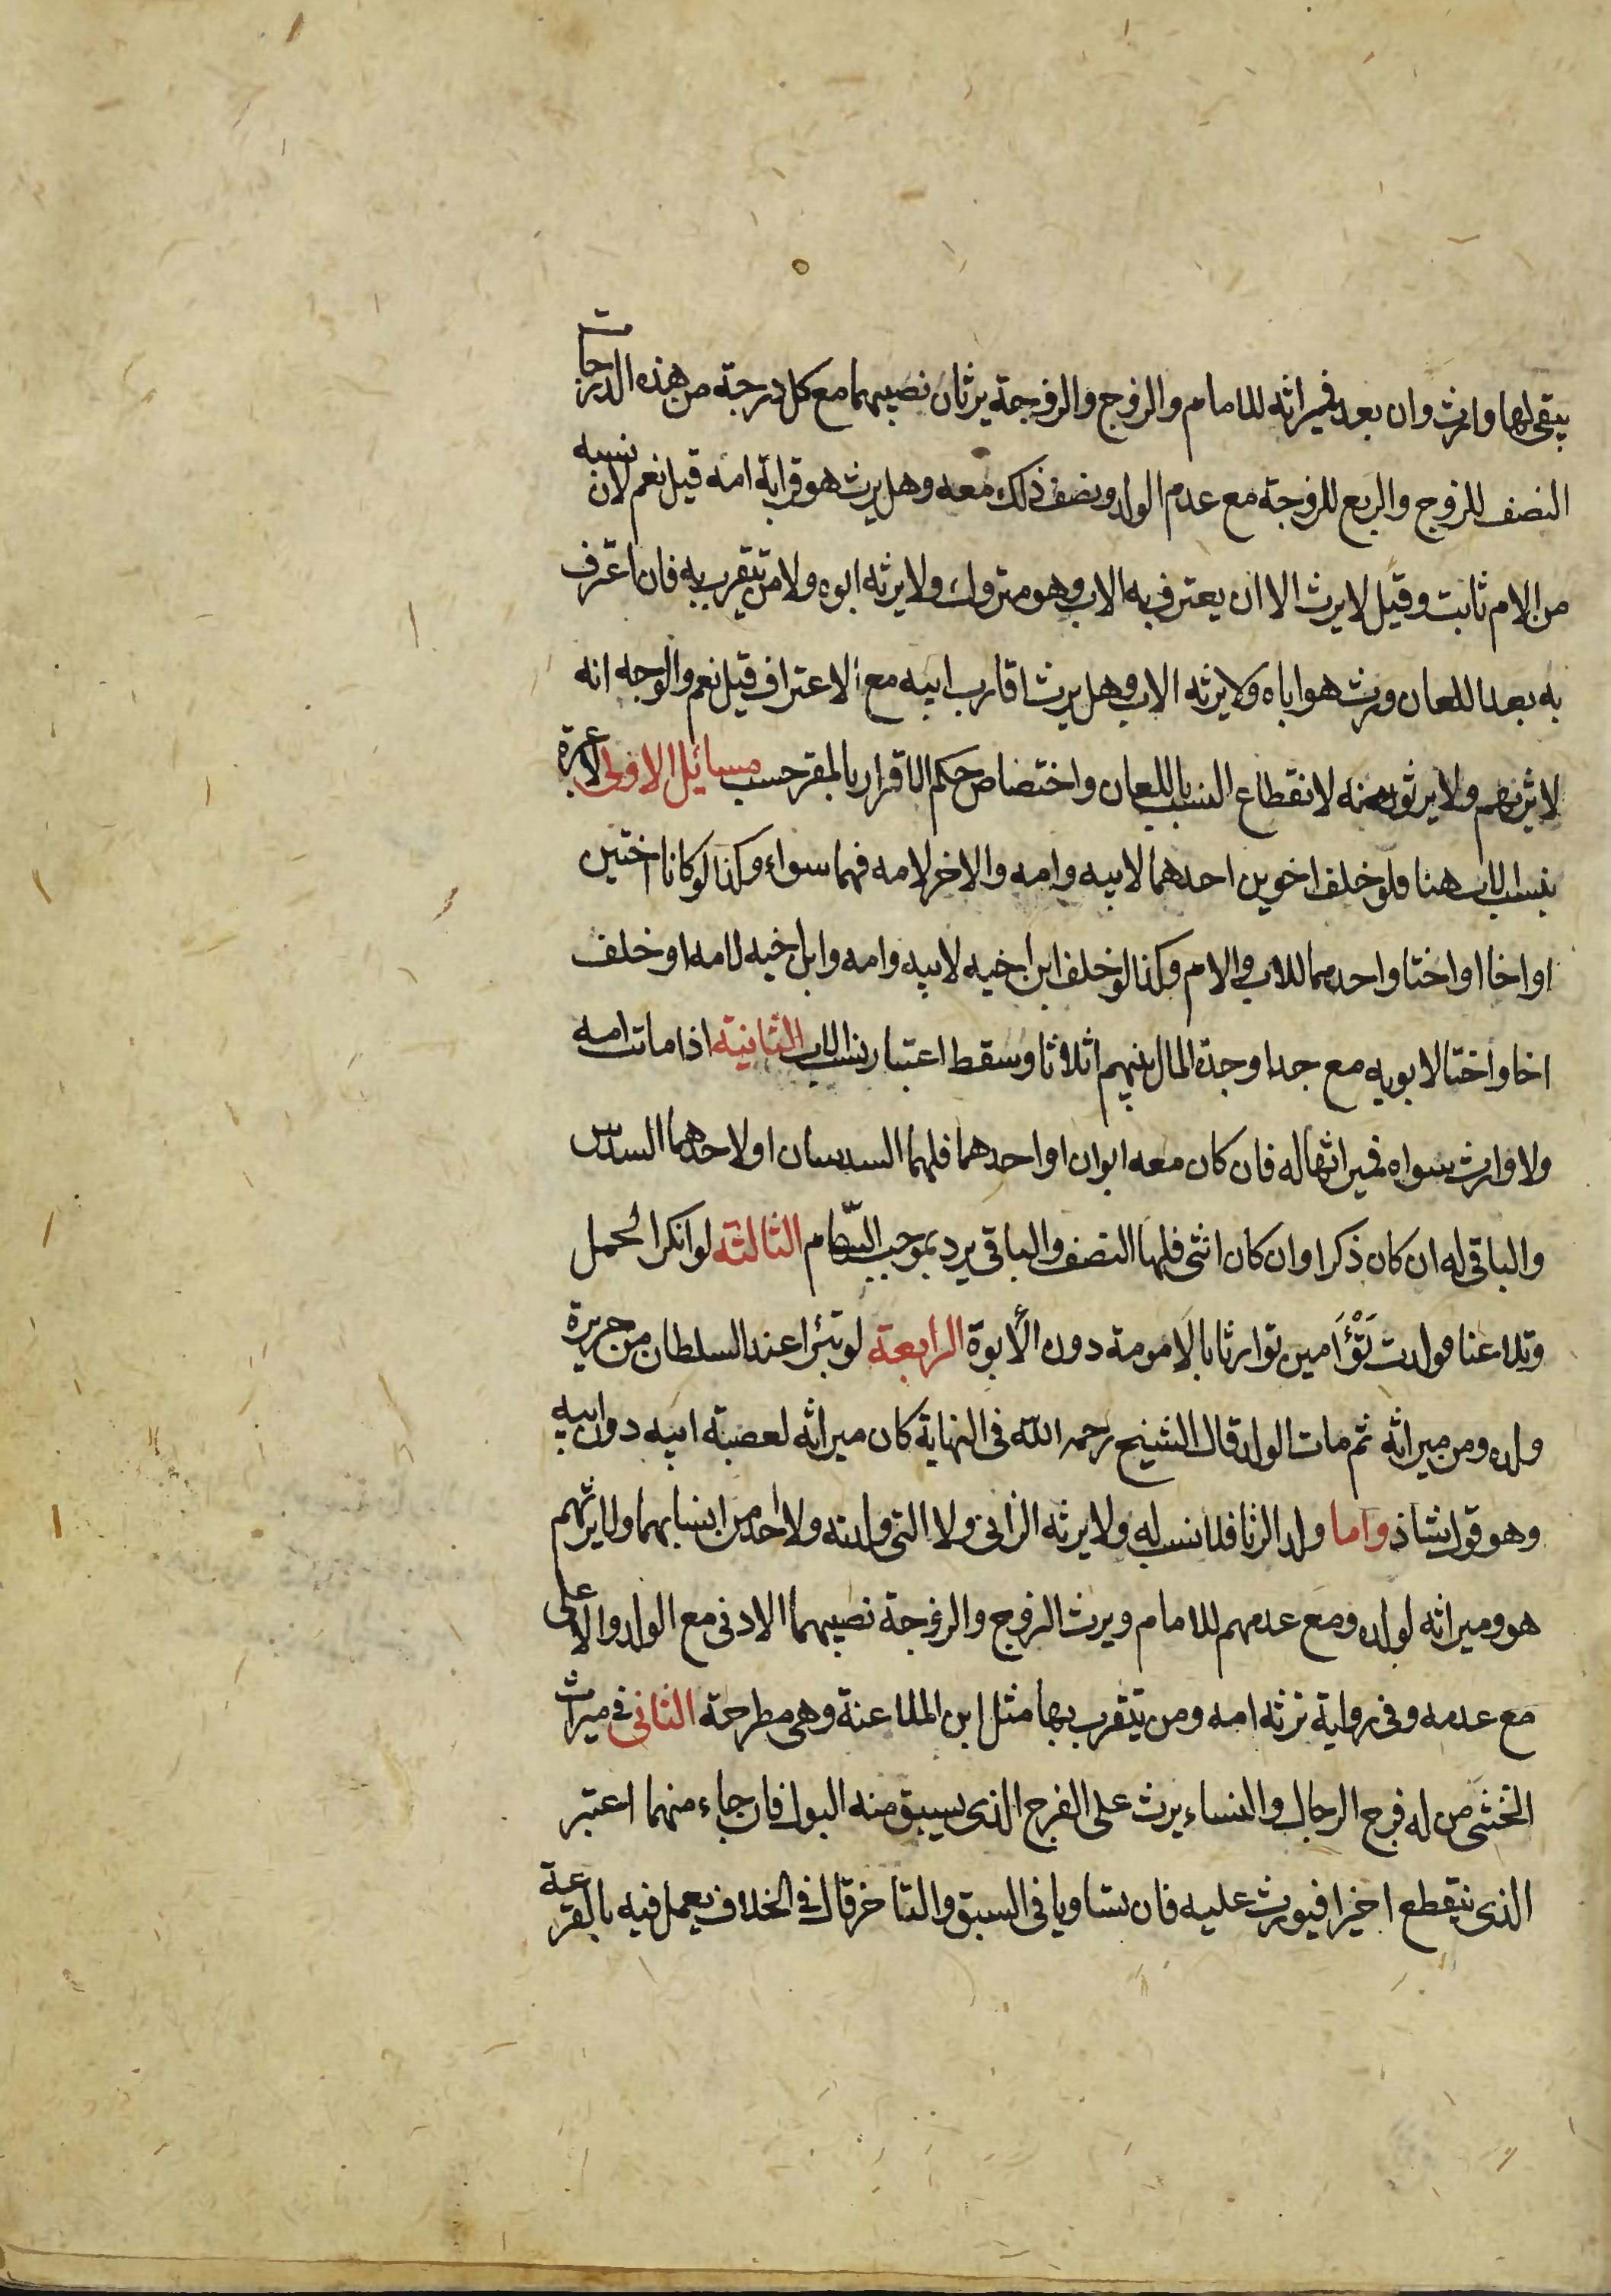 يبقى لها وارث وان بعد فميراثه للامام والزوج والزوجة يرثان نصيبهما مع كل درجة من هذه الدرجات
النصف للزوج والربع للزوجة مع عدم الولد ونصف ذلك معه وهل يرث هو قرابة امه قيل نعم لان نسبه
من الام ثابت وقيل لا يرث الا ان يعترف به الاب وهو متروك ولا يرثه ابوه ولا من يتقرب به فان اعترف
به بعد اللعان ورث هو اباه ولا يرثه الاب وهل يرث اقارب ابيه مع الاعتراف قيل نعم والوجه انه
لا يرثهم ولا يرثونه لانقطاع النسب باللعان واختصاص حكم الاقرار بالمقر حسب مسائل الاولى لا عبرة
بنسب الاب هنا فلو خلف اخوين احدهما لابيه وامه والاخر لامه فهما سواء وكذا لو كانا اختين
او اخا او اختا واحدهما للاب والام وكذا لو خلف ابن اخيه لابيه وامه وابن اخيه لامه او خلف
اخا واختا لابويه مع جد او جدة المال بينهم اثلاثا وسقط اعتبار نسب الاب الثانية اذا ماتت امه
ولا وارث سواه فميراثها له فان كان معه ابوان او احدهما فلهما السدسان او لاحدهما السدس
والباقي له ان كان ذكرا وان كان انثى فلها النصف والباقي يرد بموجب السّهام الثالثة لو انكر الحمل
وتلاعنا فولدت تَوْأَمين توارثا بالامومة دون الأبوة الرابعة لو تبرأ عند السلطان من جريرة
ولده ومن ميراثه ثم مات الولد قال الشيخ رحمه الله في النهاية كان ميراثه لعصبة ابيه دون ابيه
وهو قول شاذ واما ولد الزنا فلا نسب له ولا يرثه الزاني ولا التي ولدته ولا احد من انسابهما ولا يرثهم
هو وميراثه لولده ومع عدمهم للامام ويرث الزوج والزوجة نصيبهما الادنى مع الولد والاعلى
مع عدمه وفي رواية ترثه امه ومن يتقرب بها مثل ابن الملاعنة وهي مطرحة الثاني في ميراث
الخنثى من له فرج الرجال والنساء يرث على الفرج الذي يسبق منه البول فان جاء منهما اعتبر
الذي ينقطع اخيرا فيورث عليه فان تساويا في السبق والتاخر قال في الخلاف يعمل فيه بالقرعة